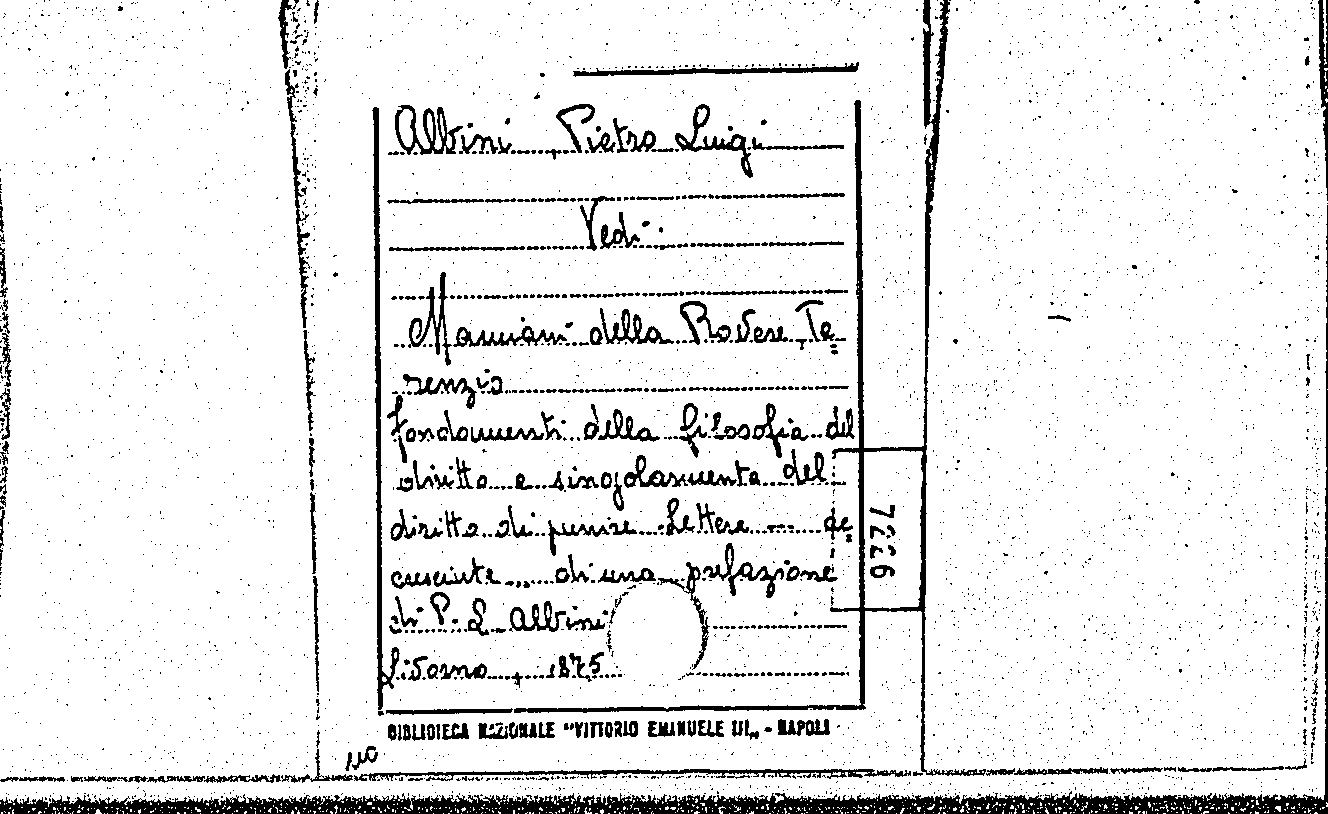 Albini, Pietro Luigi
Vedi:
Mamiani della Rovere, Te=
renzio
fondamenti della filosofia del
diritto e singolarmente del
diritto di punire. Lettere --- ac=
cresciute ... di una prefazione
di P. L. Albini
Livorno, 1875
7226
BIBLIOTECA NAZIONALE "VITTORIO EMANUELE III„ - NAPOLI